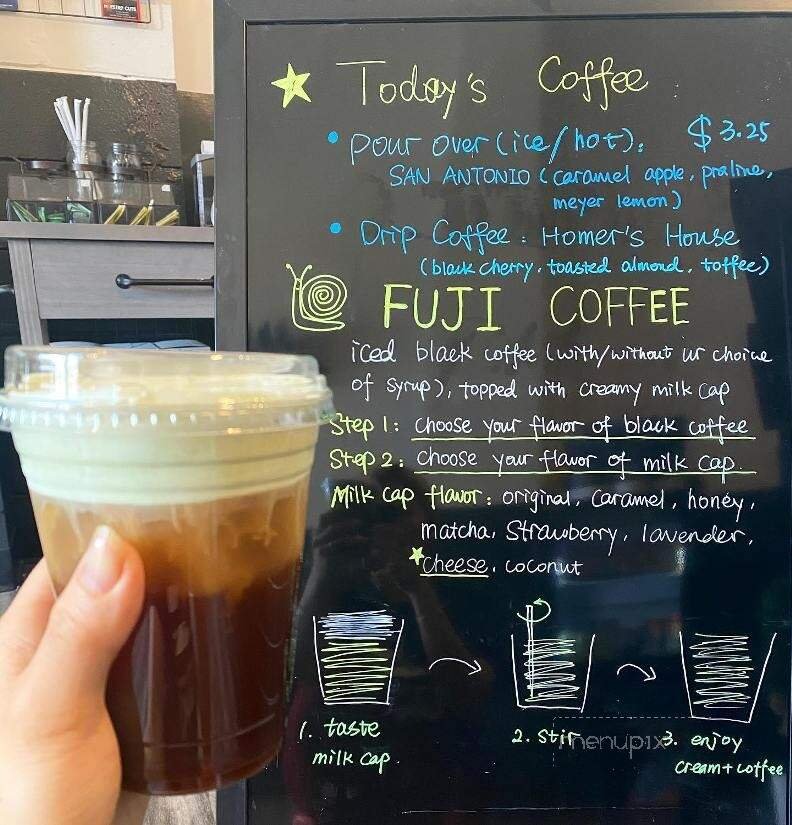 Today's Coffee
• pour over (ice/hot): $3.25
SAN ANTONIO (caramel apple, praline,
meyer lemon)
• Drip Coffee: Homer's House
(black cherry, toasted almond, toffee)
FUJI COFFEE
iced black coffee (with/without ur choice
of syrup), topped with creamy milk cap
Step 1: choose your flavor of black coffee
Step 2: choose your flavor of milk cap.
Milk cap flavor: original, caramel, honey,
matcha, Strawberry, lavender,
cheese, coconut
1. taste
milk cap.
2. Stir
3. enjoy
cream+coffee
menupix